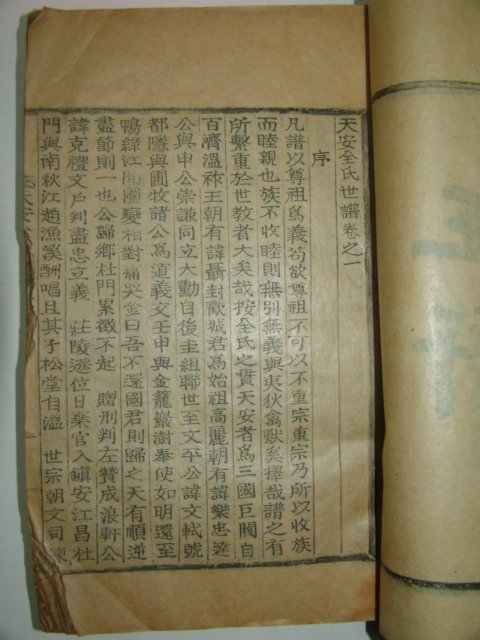 天安全氏世譜卷之一
序
凡譜以尊祖爲義苟欲尊祖不可以不重宗重宗乃所以收族
而睦親也族不收睦則無別無義與夷狄禽獸奚擇哉譜之有
所繫重於世敎者大矣哉按全氏之貫天安者爲三國巨閥自
百濟溫祚王朝有諱聶封歡城君爲始祖高麗朝有諱樂忠達
公與申公崇謙同立大勳自後圭組聯世至文平公諱文軾號
都隱與圃牧諸公爲道義交壬申與金籠巖澍奉使如明還至
鴨綠江聞國變相對痛哭金曰吾不還國君則歸之天有順逆
盡節則一也公歸鄕杜門累徵不起 贈刑判左贊成浪軒公
諱克禮文戶判盡忠立義 莊陵遜位日棄官入鎭安江昌杜
門與南秋江趙漁溪酬唱且其子松堂自溫 世宗朝文司諫